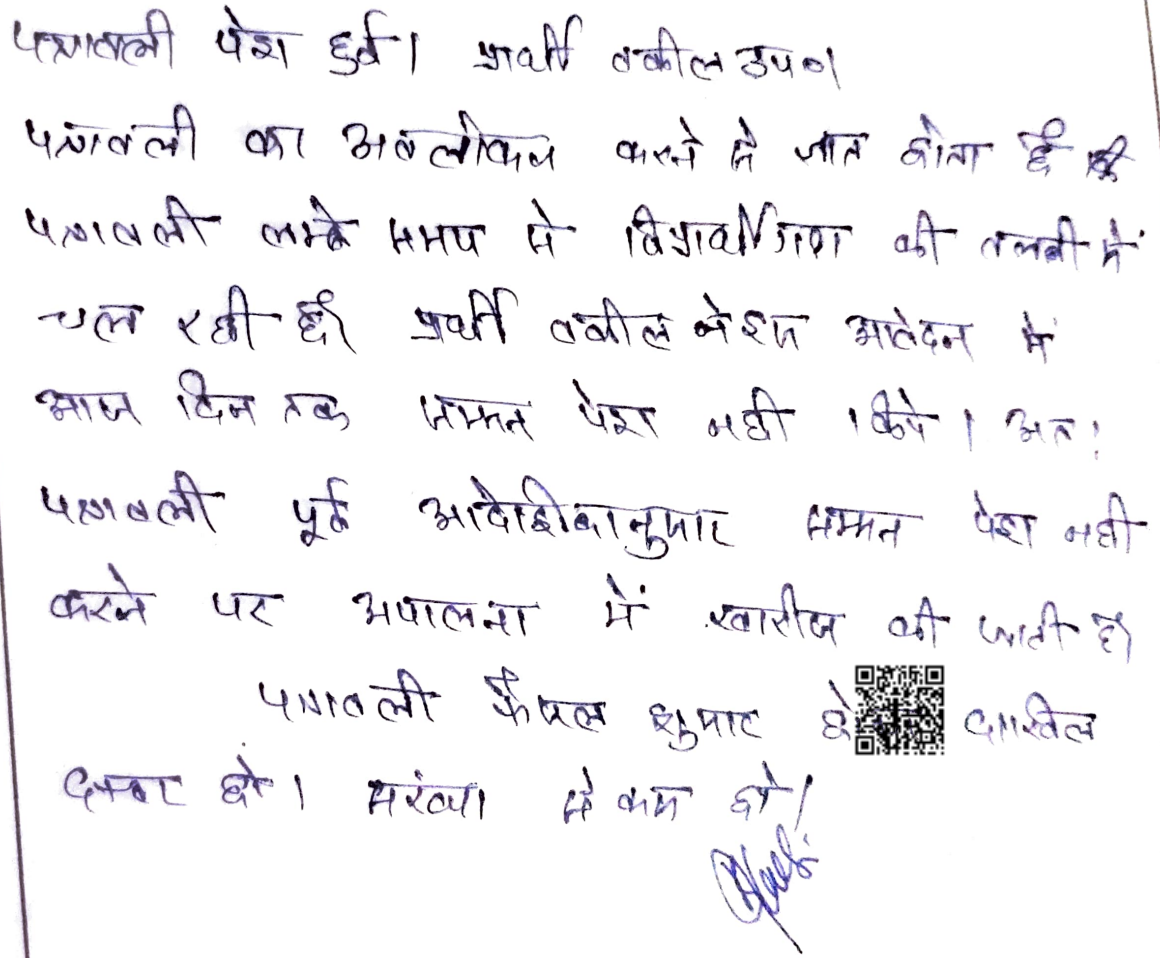 पत्रावली पेश हुई। प्रार्थी वकील उप०।
पत्रावली का अवलोकन करने से ज्ञात होता है की
पत्रावली लम्बे समय से विप्रार्थीगण की तलबी में
चल रही है। प्रार्थी वकील ने इस आवेदन में
आज दिन तक सम्मन पेश नही किये। अतः
पत्रावली पूर्व आदेशीकानुसार सम्मन पेश नही
करने पर अपालना में खारीज की जाती है।
पत्रावली फैसल शुमार दाखिल
दफ्तर हो। संख्या से कम हो।